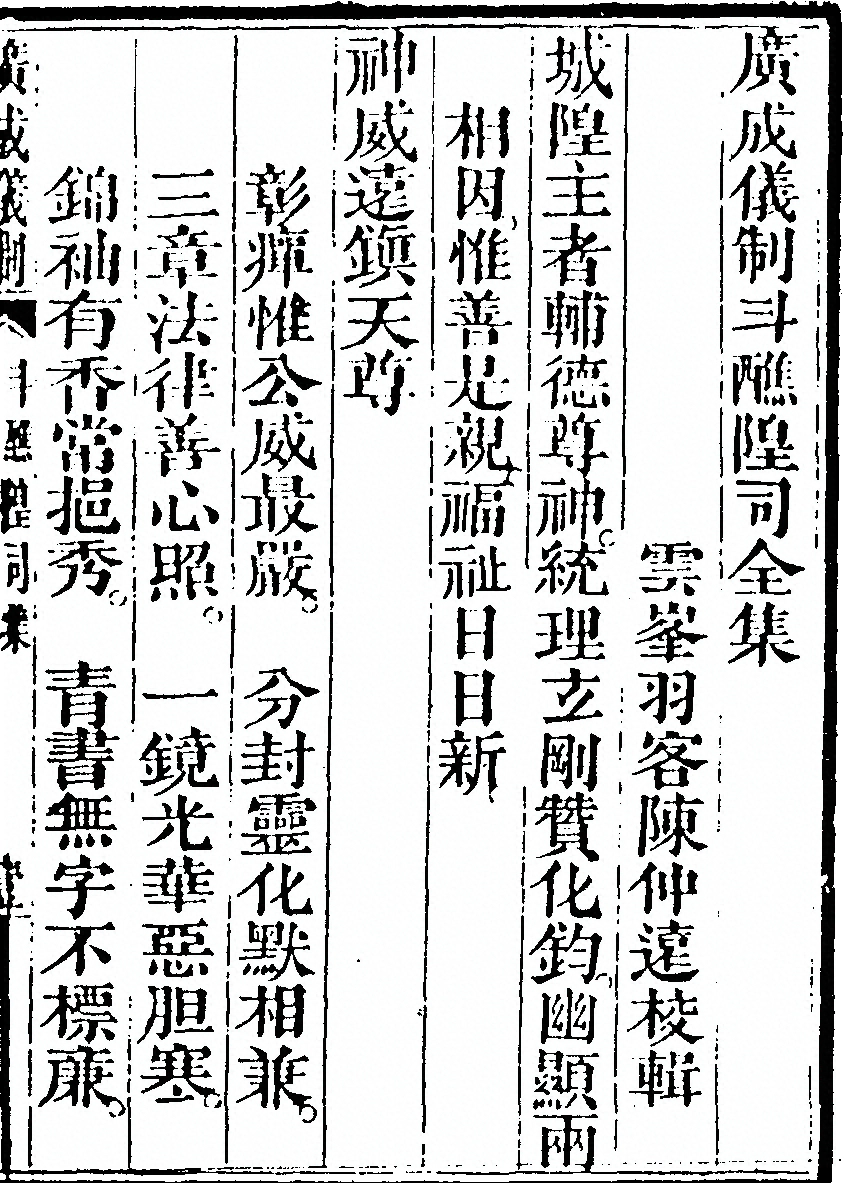 廣成儀制斗醮隍司全集
雲峯羽客陳仲遠校輯
城隍主者輔德尊神。統理玄剛贊化鈞。幽顯兩
相因惟善是親福祉日日新
神威遠鎮天尊
彰癉惟公威最嚴。 分封靈化默相兼。
三章法律善心照。 一鏡光華惡胆寒。
錦袖有香當挹秀。 青書無字不標亷。
廣成儀制 斗醮隍司集